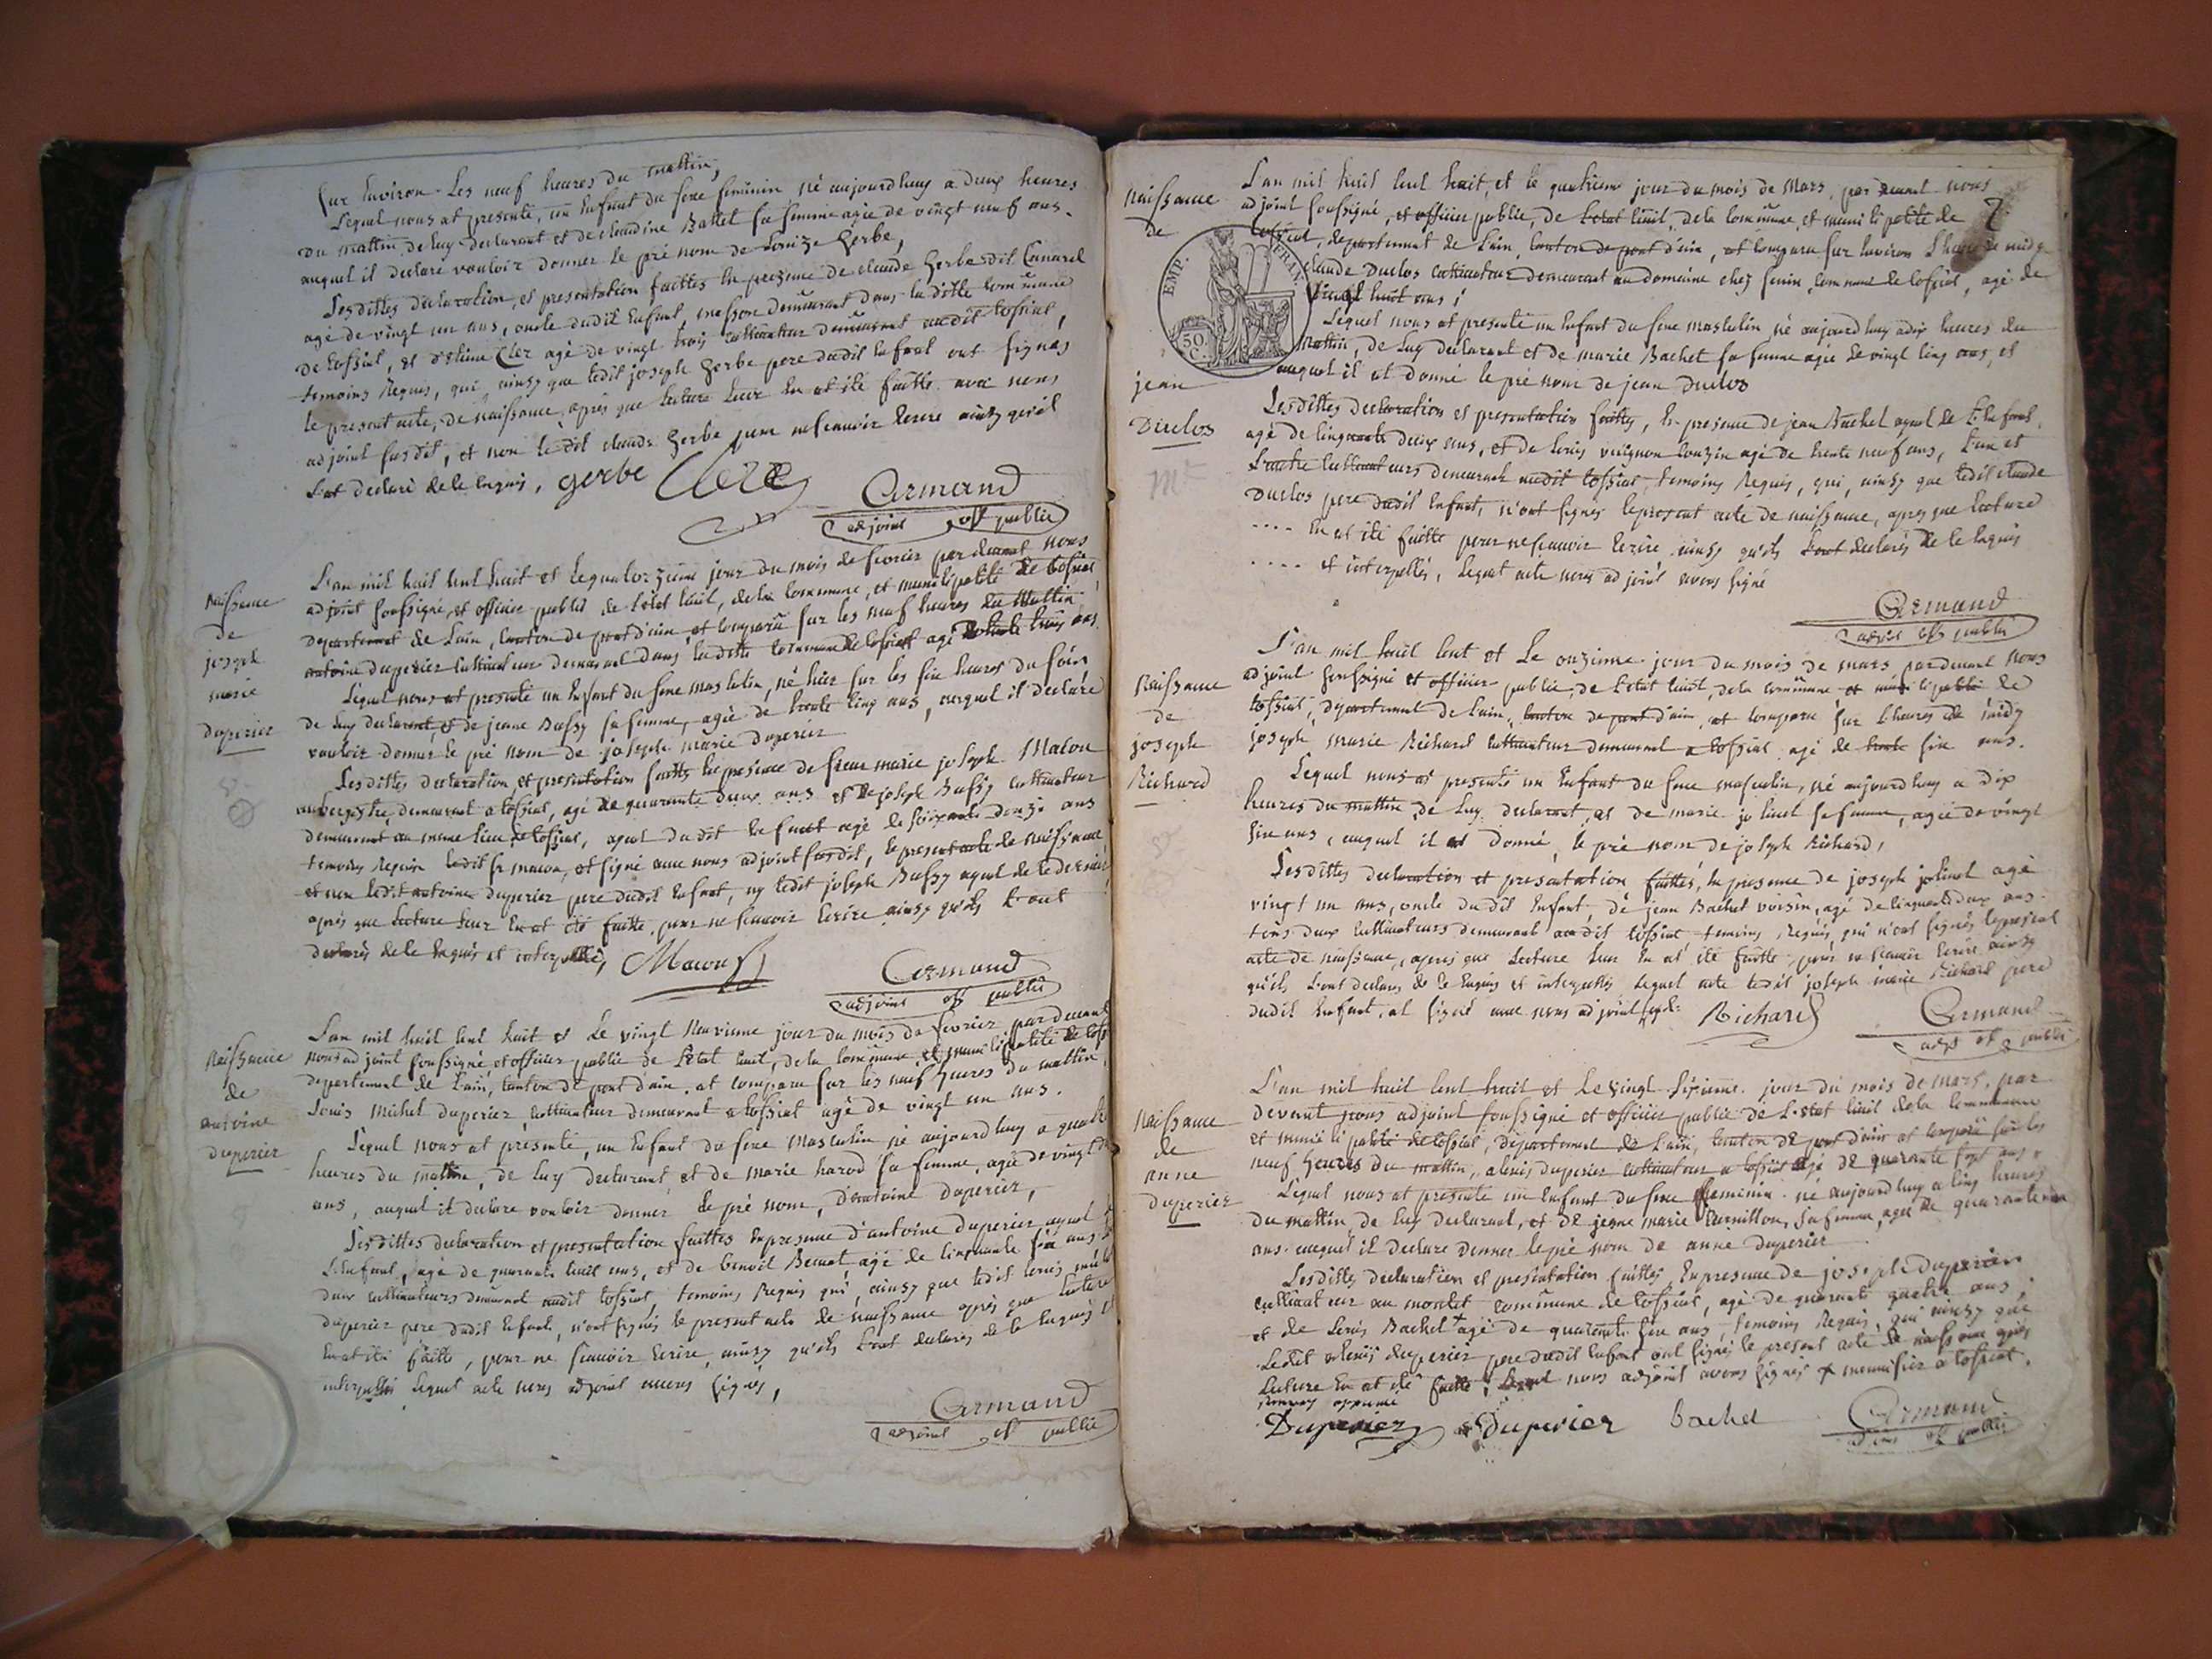 sur Environ les neuf heures du mattin,
Lequel nous at presenté, un Enfant du sexe feminin né aujourdhuy a deux heures
du mattin de luy declarant et de claudine Battet sa femme agée de vingt neuf ans.
auquel il declare vouloir donner le pré nom de Louize Gerbe,
Lesdittes declaration, et presentation faittes En presence de claude Gerbe dit Canard
agé de vingt un ans, oncle dudit Enfant, masson demeurant dans laditte commune
de tossiat, et d'etiene Clez agé de vingt trois cultivateur demeurant audit tossiat,
temoins Requis, qui ainsy que ledit joseph Gerbe pere dudit Enfant ont signés
le present acte, de naissance, aprés que lecture Leur En at été faitte avec nous
adjoint susdit, et non le dit claude Gerbe pour ne scauoir Ecrire ainsy qu'il
L'at declaré de ce Enquis, gerbe Clerc Armand
adjoint off public
Naissance
de
joseph
marie
duperier
L'an mil huit Cent huit et Le quatorzieme jour du mois de fevrier par devant nous
adjoint soussigné, et officier public de L'etat Civil, de la Commune, et municipalité de tossiat
departement de Lain, Canton de pont d'ain, at comparu sur les neuf heures du Mattin
antoine duperier Cultivateur demeurant dans laditte Commune de tossiat agé de trente trois ans
Lequel nous at presenté un Enfant du sexe masculin, né hier sur les six heures du soir
de luy declarant et de jeane Bussy sa femme, agée de trente cinq ans, auquel il declare
vouloir donner le pré nom de joseph marie duperier
Lesdittes declaration, et presentation faittes En presence de sieur marie joseph Macon
aubergiste, demeurant a tossiat, agé de quarante deux ans et de joseph Bussy cultivateur
demeurant au meme lieu de tossiat, ayeul du dit Enfant agé de soixante douze ans
temoins Requis ledit sr macon, at signé avec nous adjoint susdit, le present acte de naissance
et non ledit antoine duperier pere dudit Enfant, ny ledit joseph Bussy ayeul de ce dernier
aprés que Lecture Leur En at été faitte, pour ne scauoir Ecrire ainsy qu'ils L'ont
declarés de ce Enquis et interpellé, Macon Armand
adjoint off public
Naissance
de
antoine
duperier
L'an mil huit Cent huit et Le vingt Neuvieme jour du mois de fevrier par devant
nous adjoint soussigné, et officier public de L'etat Civil, de la Commune, et municipalité de toss
departement de Lain, Canton de pont d'ain, at comparu sur les neuf heures du mattin
Louis Michel duperier, cultivateur demeurant a tossiat agé de vingt un ans.
Lequel nous at presenté, un Enfant du sexe Masculin né aujourdhuy a quatre
heures du mattin, de luy declarant, et de marie harod sa femme, agée de vingt
ans, auquel il declare vouloir donner le pré nom, d'antoine duperier,
Lesdittes declaration et presentation faittes En presence d'antoine duperier ayeul
L'Enfant, agé de quarante huit ans, et de benoit Benat agé de cinquante six ans
deux cultivateurs demeurant audit tossiat, temoins Requis qui, ainsy que ledit Louis michel
duperier pere dudit Enfant, n'ont signés le present acte de naissance aprés que Lecture
En at été faitte, pour ne scauoir Ecrire, ainsy qu'ils L'ont declarés de ce Enquis et
interpellés Lequel acte nous adjoint avons signés,
Armand
adjoint off public
7
Naissance
de
jean
Duclos
EMP. FRAN.
50 C.
L'an mil huit Cent huit, et le quatrieme jour du mois de Mars, par devant nous
adjoint soussigné, et officier public, de L'etat Civil, de la Commune, et municipalité de
tossiat, departement de Lain, Canton de pont d'ain, at comparu sur Environ L'heure de midy
claude Duclos Cultivateur demeurant au domaine chez Genin, Commune de tossiat, agé de
vingt huit ans,
Lequel nous at presenté un Enfant du sexe masculin, né aujourdhuy a dix heures du
Mattin, de Luy declarant et de marie Bachet sa femme agée de vingt cinq ans, et
auquel il at donné le pré nom de jean Duclos
Lesdittes declaration et presentation faittes, En presence de jean Bachet ayeul de L'Enfant,
agé de cinquante deux ans, et de Louis vuignon Couzin agé de trente neuf ans, L'un et
L'autre Cultivateurs demeurant audit tossiat, temoins Requis, qui, ainsy que ledit claude
Duclos pere dudit Enfant, n'ont signés le present acte de naissance, apres que Lecture
.... En at été faitte pour ne scauoir Ecrire ainsy qu'ils L'ont declarés de ce Enquis
.... et interpellés, Lequel acte nous adjoint avons signé
Armand
adjoint off public
Naissance
de
joseph
Richard
L'an mil huit Cent et Le onzieme jour du mois de mars par devant nous
adjoint soussigné et officier public, de L'etat Civil, de la commune et municipalité de
tossiat, departement de Lain, Canton de pont d'ain, at comparu sur L'heures de midy
joseph marie Richard cultivateur demeurant a tossiat agé de trente six ans.
Lequel nous at presenté un Enfant du sexe masculin, né aujourdhuy a dix
heures du mattin, de Luy declarant, et de marie jolinet sa femme, agée de vingt
six ans, auquel il at donné, le pré nom de joseph Richard,
Lesdittes declaration et presentation faittes, En presence de joseph jolinet agé
vingt un ans, oncle du dit Enfant, de jean Bachet voisin, agé de cinquante deux ans.
tous deux Cultivateurs demeurant audit tossiat temoins Requis, qui n'ont signés le present
acte de naissance, apres que Lecture Leur En at été faitte, pour ne scauoir Ecrire ainsy
qu'ils L'ont declarés de ce Enquis et interpellés Lequel acte ledit joseph marie Richard pere
dudit Enfant, at signé avec nous adjoint susdit Richard Armand
adjt off public
Naissance
de
anne
duperier
L'an mil huit Cent huit et Le vingt sixieme jour du mois de Mars, par
devant nous adjoint soussigné et officier public de L'etat Civil de la Commune
et municipalité de tossiat, Departement de Lain, Canton de pont d'ain at comparu sur les
neuf heures du mattin, alexis duperier cultivateur a tossiat agé de quarante sept ans,
Lequel nous at presenté un Enfant du sexe feminin né aujourdhuy a cinq heures
du mattin, de luy declarant, et de jeane marie sa femme, agée de quarante un
ans auquel il declare donner le pré nom de anne duperier
Lesdittes declaration et presentation faittes En presence de joseph duperier
cultivateur au mortet commune de tossiat, agé de quarante quatre ans,
et de Louis Bachel + agé de quarante six ans temoins Requis, qui ainsy que
Ledit alexis duperier pere dudit Enfant ont signés le present acte de naissance aprés
Lecture En at été faitte, Lequel nous adjoint avons signés + menuisier a tossiat,
Renvoy approuvé
Duperier Duperier Bachel Armand
adjoint off public